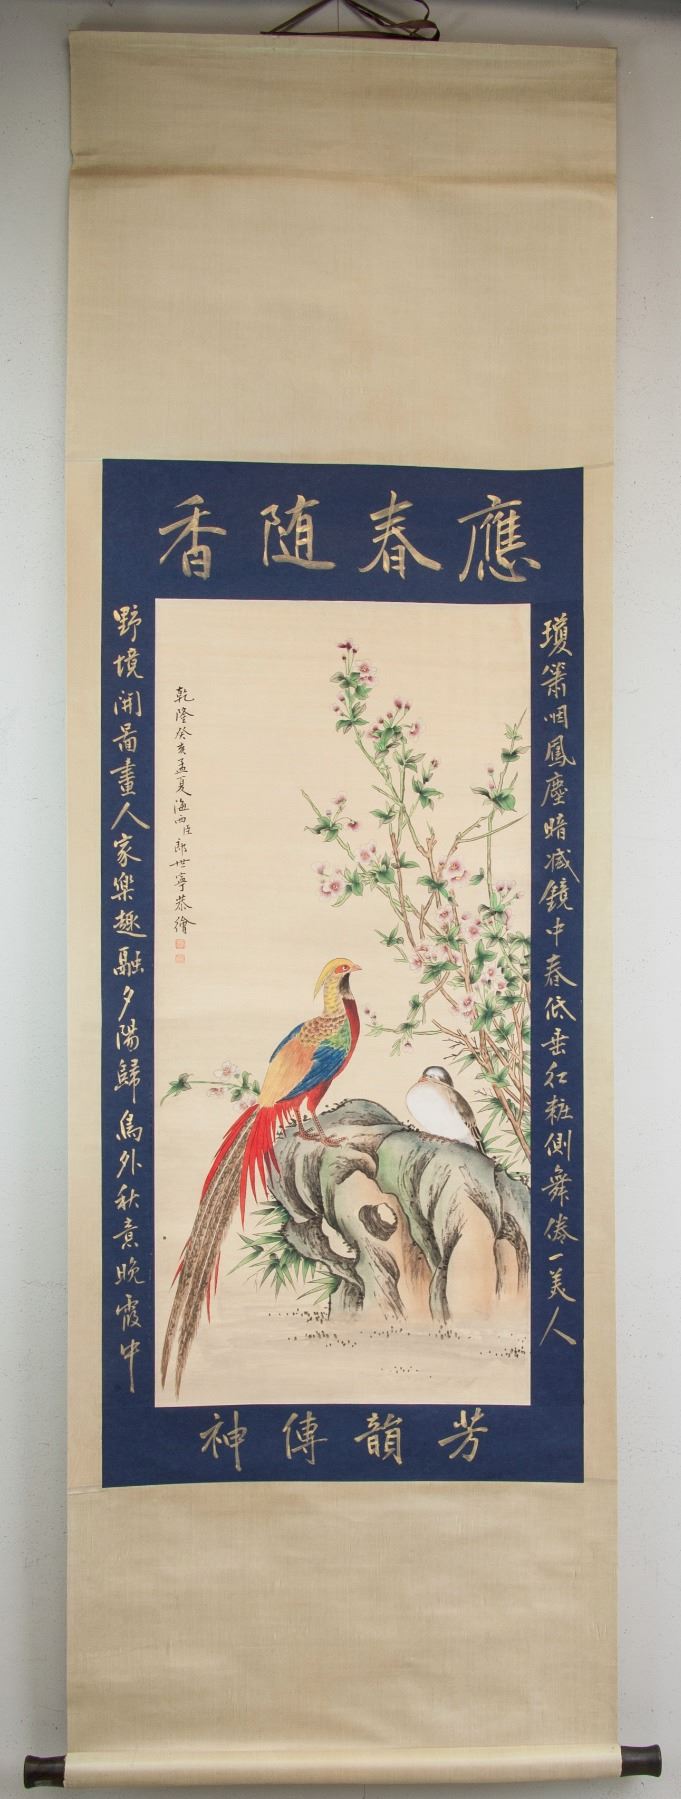 應春隨香
瓊簫咽鳳塵暗減鏡中春低垂红粧側舞倦一美人
乾隆癸亥孟夏海西臣郎世寧恭繪
野境開啚畫人家樂趣融夕陽歸鳥外秋意晚霞中
芳韻傳神